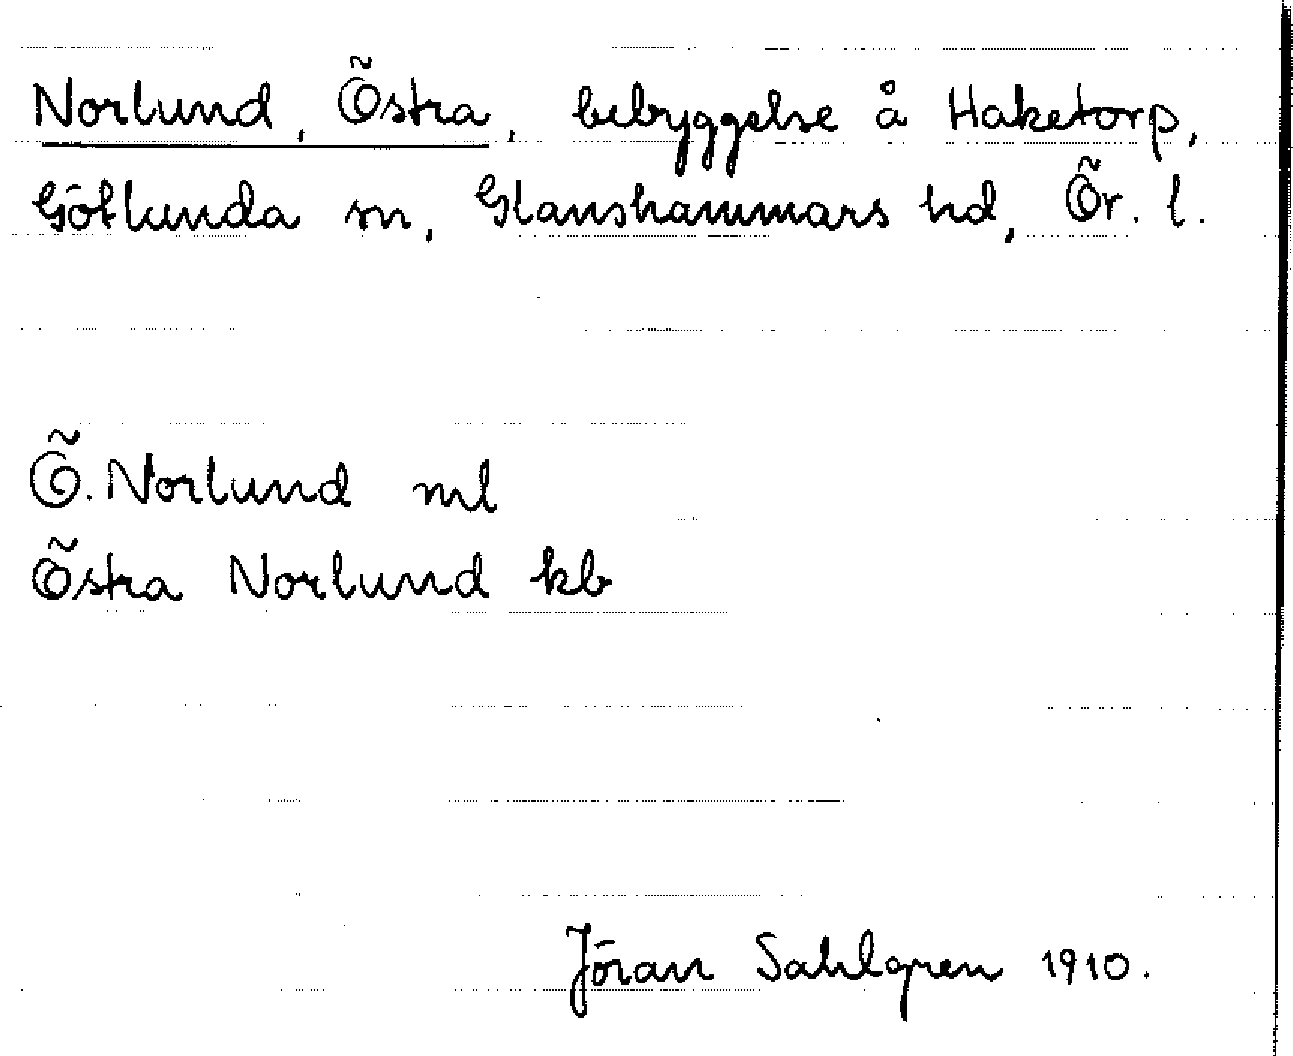 Norlund, Östra, bebyggelse å Haketorp,
Götlunda sn, Glanshammars hd, Ör. l.
Ö. Norlund ml
Östra Norlund kb
Jöran Sahlgren 1910.